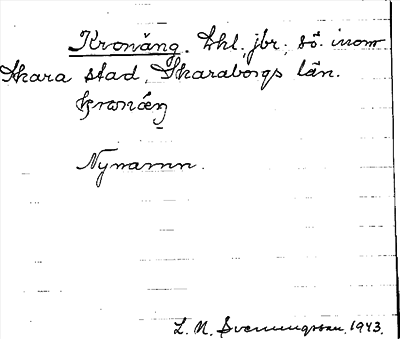 Kronäng. Lhl, jbr, sö. inom
Skara stad, Skaraborgs län.
Nynamn.
L. N. Svenungsson. 1943.